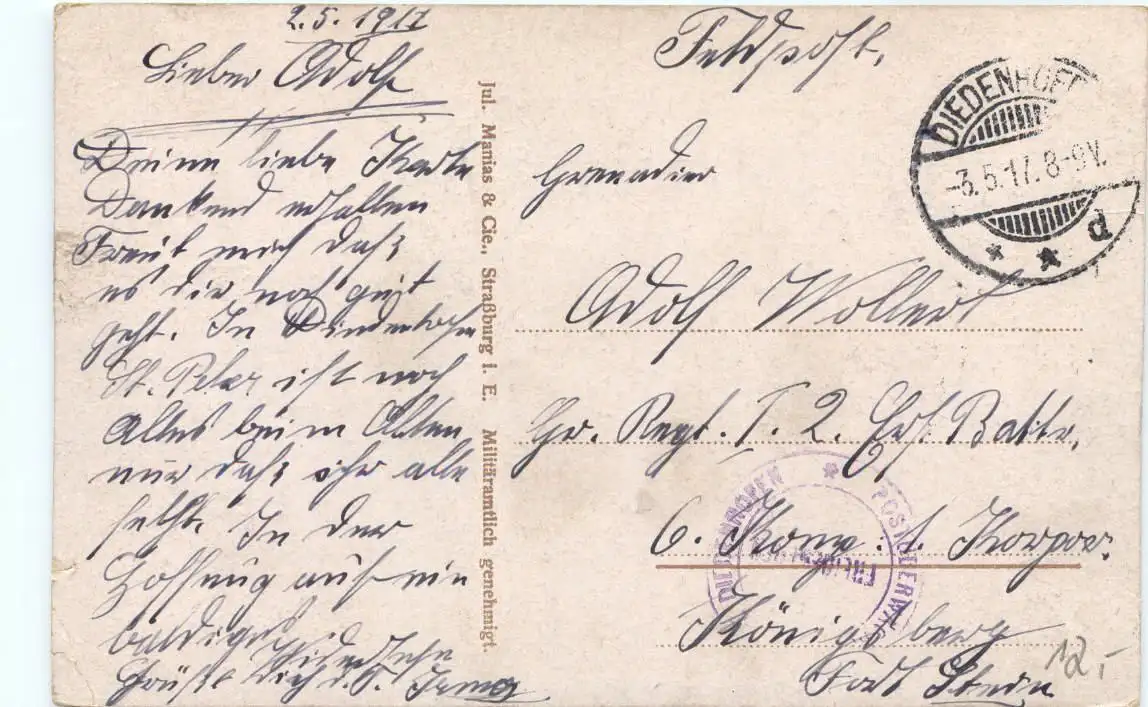 2.5.1917
Lieber Adolf
Deine liebe Karte
Dankend erhalten
Freut mich daß
es dir noch gut
geht. In Diedenhofen
St. Peter ist noch
Alles beim Alten
nur daß ihr alle
fehlt. In der
Hoffnug auf ein
baldiges
Widersehn
Grüßt Dich d. F.
Jul. Manias & Cie., Straßburg i. E. Militäramtlich genehmigt.
Feldpost.
DIEDENHOFEN
-3.5.17. 8-9V.
* * d
Grenadier
Adolf Wollert
Gr. Regt. I. 2. Ers. Battr.
6. Komp. 1. Korpor.
Königsberg
Fort Stein
12.-